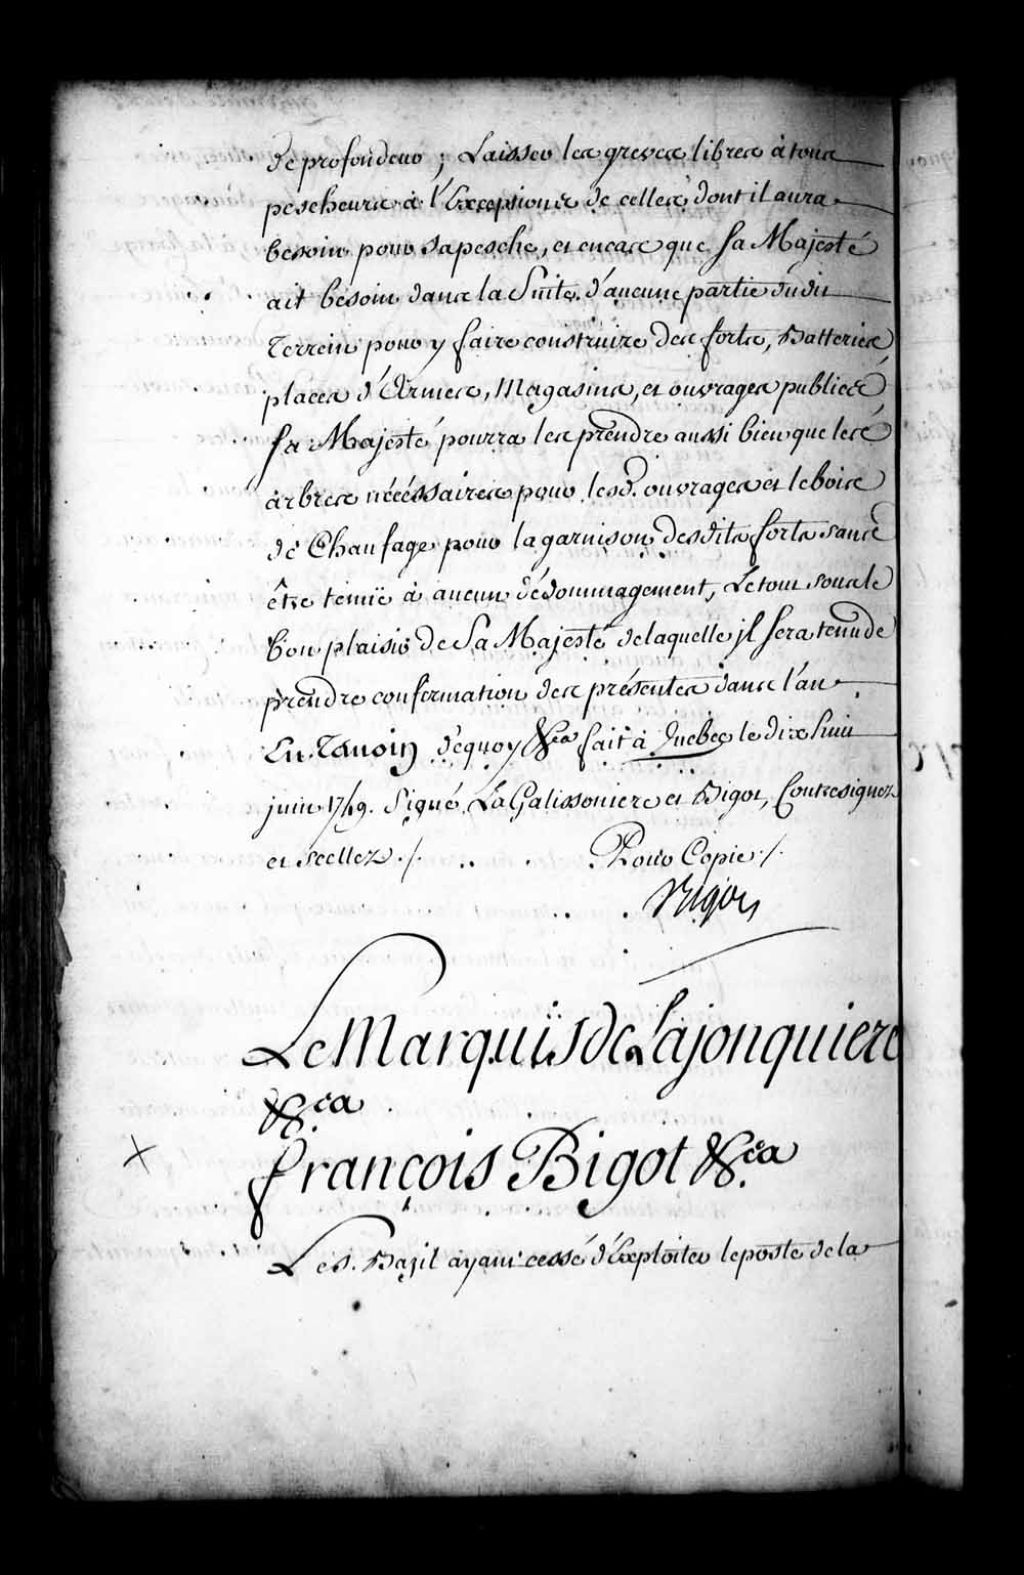 de profondeur ; Laisser les greves libres à tous
pescheurs à l'Exception de celles dont il aura
besoin pour sa pesche, et encas que Sa Majesté
ait besoin dans la Suite d'aucune partie dudit
Terrein pour y faire construire des forts, Batteries
places d'Armes, Magasins, et ouvrages publics
Sa Majesté pourra les prendre aussi bien que les
arbres nécéssaires pour lesd. ouvrages et le bois
de Chaufage pour la garnison desdits forts sans
être tenuë à aucun dédommagement, Le tout sous le
bon plaisir de Sa Majesté de laquelle jl sera tenu de
prendre confirmation des présentes dans l'an
En Témoin dequoy &ca fait à Quebec le dix huit
juin 1749. Signé, La Galissoniere et Bigot, Contresignez
et scellez ./. Pour Copie ./.
Bigot
Le Marquis de Lajonquiere
&ca
François Bigot &ca
Le S. Bazil ayant cessé d'Exploiter le poste de la